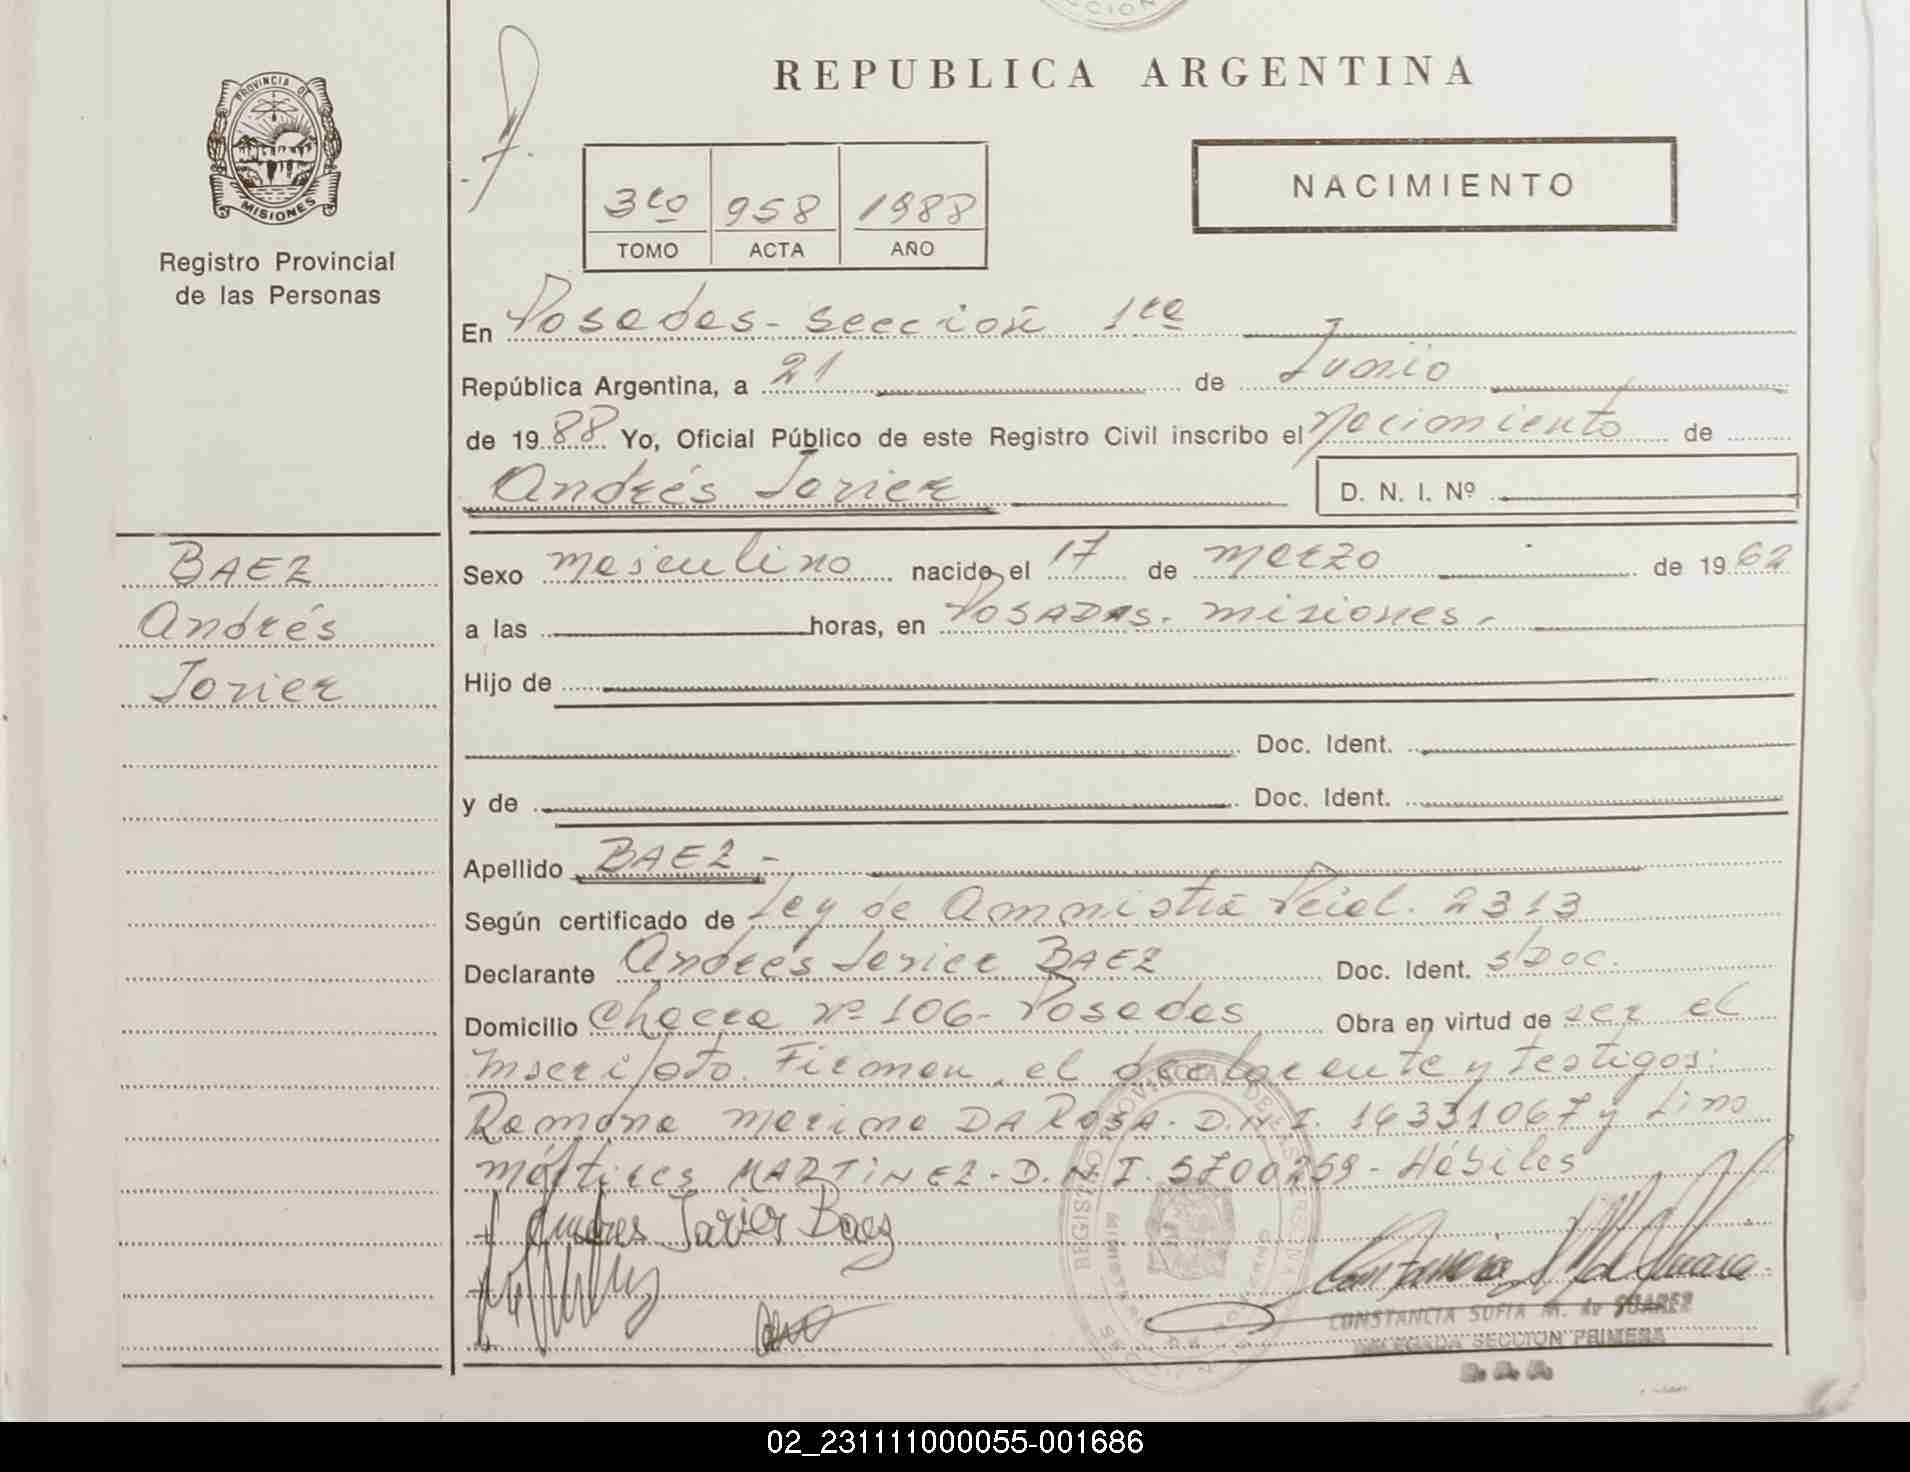 REPUBLICA ARGENTINA
PROVINCIA DE
MISIONES
Registro Provincial
de las Personas
3ro 958 1988
TOMO ACTA AÑO
NACIMIENTO
En Posadas - Sección 1ra
República Argentina, a 21 de Junio
de 1988 Yo, Oficial Público de este Registro Civil inscribo el Nacimiento de
Andrés Javier D. N. I. Nº
BAEZ
Andrés
Javier
Sexo masculino nacido el 17 de marzo de 1962
a las horas, en POSADAS. Misiones.
Hijo de
Doc. Ident.
y de Doc. Ident.
Apellido BAEZ -
Según certificado de Ley de Amnistía Pcial. 2313
Declarante Andrés Javier BAEZ Doc. Ident. s/Doc.
Domicilio Chacra Nº 106 - Posadas Obra en virtud de ser el
Inscripto. Firman, el declarante y testigos:
Ramona Marina DA ROSA - D.N.I. 16331067 y Lino
Mártires MARTINEZ - D.N.I. 5700259 - Hábiles
Andres Javier Baez
CONSTANCIA SOFIA M. de SUAREZ
DELEGADA SECCION PRIMERA
02_231111000055-001686